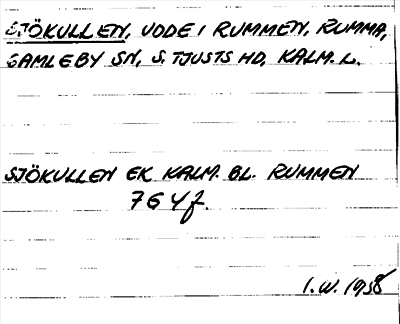 SJÖKULLEN, UDDE I RUMMEN, RUMMA,
GAMLEBY SN, S. TJUSTS HD, KALM. L.
SJÖKULLEN EK KALM. BL. RUMMEN
7G4f.
I.W. 1938